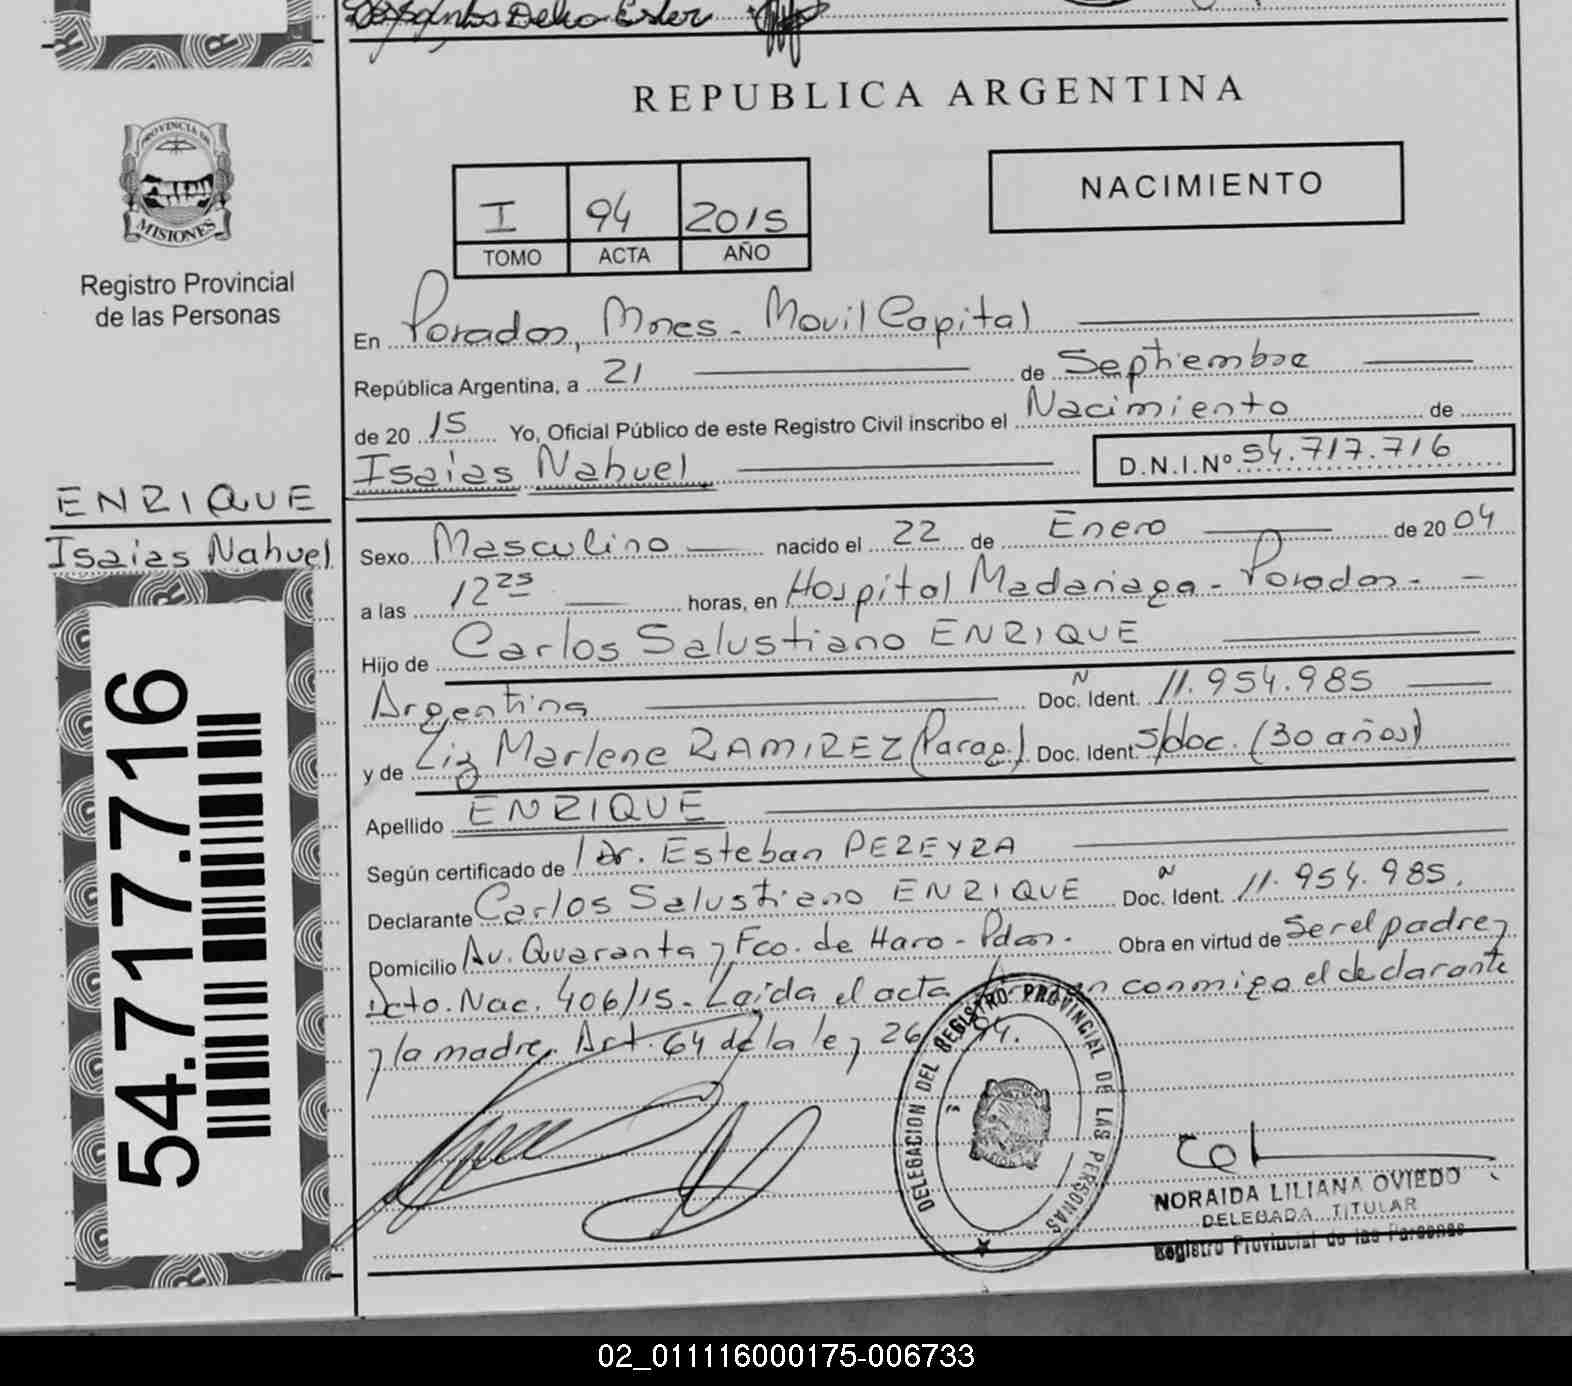 Delia Ester
REPUBLICA ARGENTINA
PROVINCIA DE
MISIONES
Registro Provincial
de las Personas
I 94 2015
TOMO ACTA AÑO
NACIMIENTO
En Posadas, Mnes. Movil Capital
República Argentina, a 21 de Septiembre
de 20 15 Yo, Oficial Público de este Registro Civil inscribo el Nacimiento de
Isaias Nahuel D.N.I.Nº 54.717.716
ENRIQUE
Isaias Nahuel
54.717.716
Sexo Masculino nacido el 22 de Enero de 20 04
a las 12 25 horas, en Hospital Madariaga - Posadas -
Hijo de Carlos Salustiano ENRIQUE
Argentina Doc. Ident. 11.954.985
y de Liz Marlene RAMIREZ (Parag.) Doc. Ident S/doc. (30 años)
Apellido ENRIQUE
Según certificado de Dr. Esteban PEREYRA
Declarante Carlos Salustiano ENRIQUE Doc. Ident. 11.954.985.
Domicilio Av. Quaranta y Fco. de Haro - Pdas. Obra en virtud de Ser el padre y
Dcto. Nac. 406/15. Leida el acta firman conmigo el declarante
y la madre. Art. 64 de la ley 26 94.
DELEGACION DEL REGISTRO PROVINCIAL DE LAS PERSONAS
NORAIDA LILIANA OVIEDO
DELEGADA TITULAR
Registro Provincial de las Personas
02_011116000175-006733